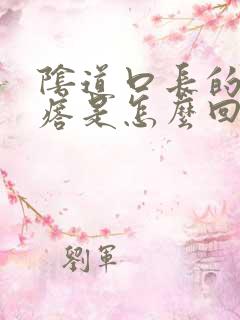 陰道口長的
痞是怎麼回
劉軍